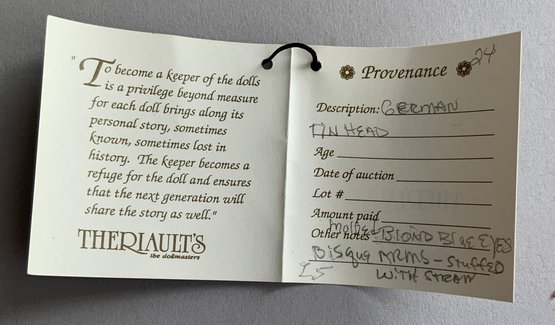 "To become a keeper of the dolls
is a privilege beyond measure
for each doll brings along its
personal story, sometimes
known, sometimes lost in
history. The keeper becomes a
refuge for the doll and ensures
that the next generation will
share the story as well."
THERIAULT'S
the dollmasters
24
Provenance
Description: GERMAN
TIN HEAD
Age
Date of auction
Lot #
Amount paid
molded
Other notes BLOND BLUE EYES
BISQUE ARMS - STUFFED
WITH STRAW